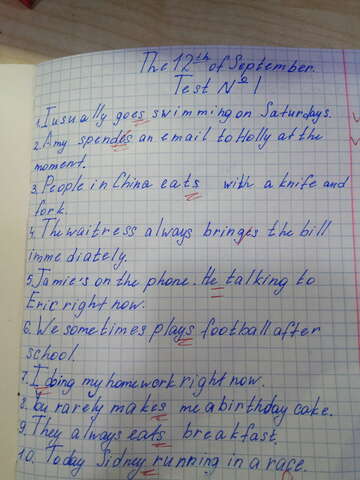 The 12th of September.
Test № 1
1. I usually goes swimming on Saturdays.
2. Amy spendes an email to Holly at the
moment.
3. People in China eats with a knife and
fork.
4. The waitress always bringes the bill
immediately.
5. Jamie's on the phone. He talking to
Eric right now.
6. We sometimes plays football after
school.
7. I doing my homework right now.
8. You rarely makes me a birthday cake.
9. They always eats breakfast.
10. Today Sidney running in a race.